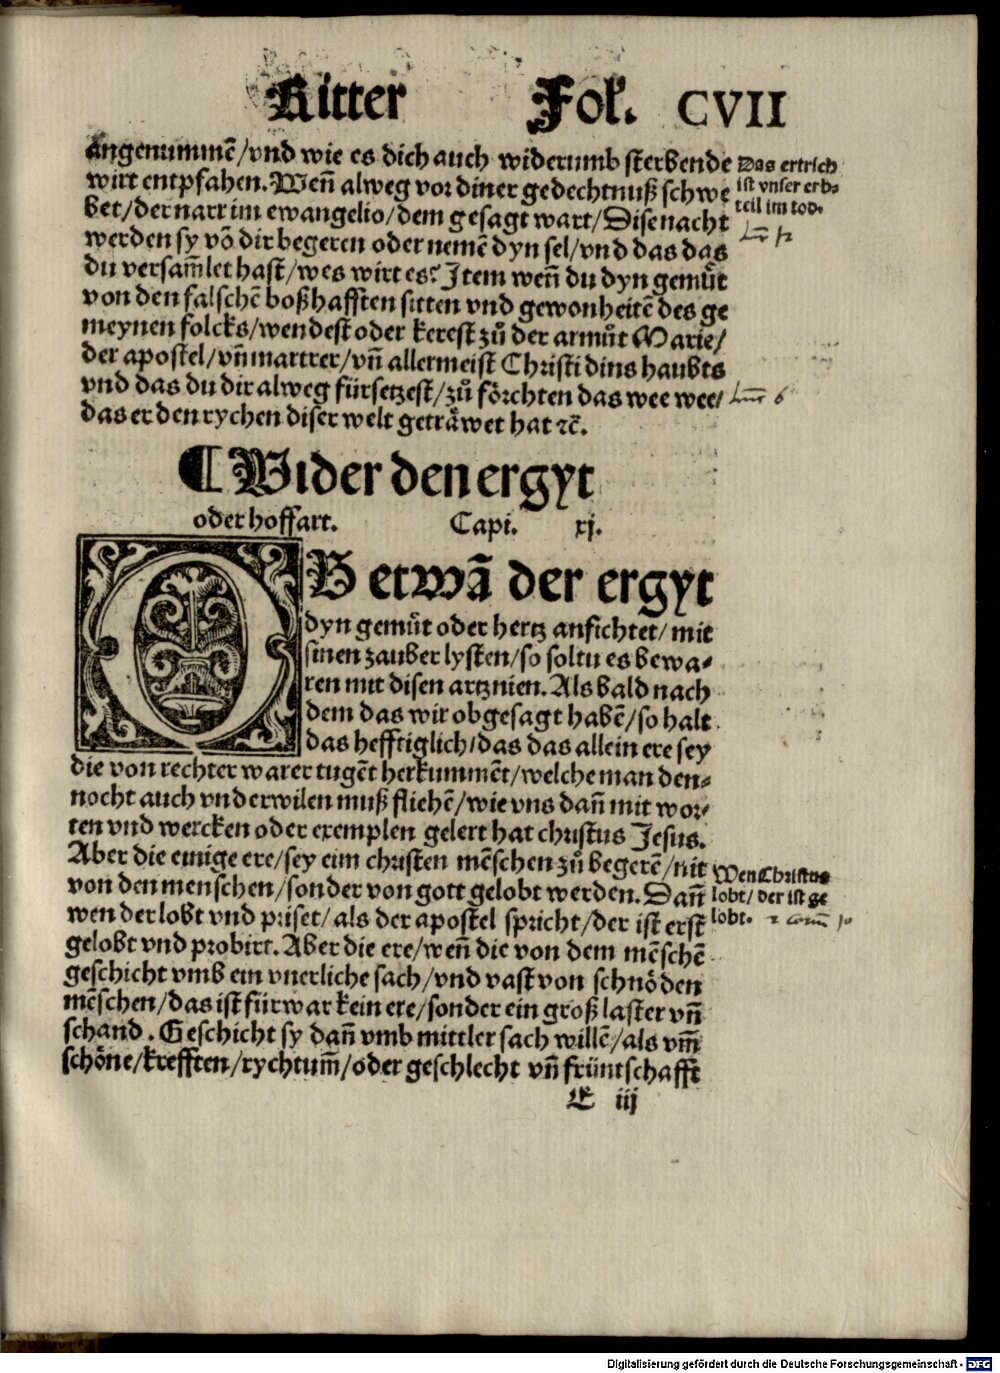 Ritter Fol. CVII
angenummẽ/vnd wie es dich auch widerumb sterbende
wirt entpfahen. Weñ alweg vor diner gedechtnuß schwe
bet/der narr im ewangelio/dem gesagt wart/Dise nacht
werden sy võ dir begeren oder nemẽ dyn sel/vnd das das
du versam̃let hast/wes wirt es? Item weñ du dyn gemuͤt
von den falschẽ boßhafften sitten vnd gewonheitẽ des ge
meynen folcks/wendest oder kerest zuͦ der armuͦt Marie/
der apostel/vñ martrer/vñ allermeist Christi dins haubts
vnd das du dir alweg fürsetzest/zuͦ foͤrchten das wee wee/
das er den rychen diser welt getraͤwet hat ꝛc̃.
Das ertrich
ist vnser erb-
teil im tod.
Luc 12
Luc 6
¶ Wider den ergyt
oder hoffart. Capi. xj.
OB etwã der ergyt
dyn gemuͤt oder hertz anfichtet/mit
sinen zauber lysten/so soltu es bewa-
ren mit disen artznien. Als bald nach
dem das wir obgesagt habẽ/so halt
das hefftiglich/das das allein ere sey
die von rechter warer tugẽt herkummẽt/welche man den-
nocht auch vnderwilen muß fliehẽ/wie vns dañ mit wor-
ten vnd wercken oder exemplen gelert hat christus Jesus.
Aber die einige ere/sey eim christen mẽschen zuͦ begerẽ/nit
von den menschen/sonder von gott gelobt werden. Dañ
wen der lobt vnd priset/als der apostel spricht/der ist erst
gelobt vnd probirt. Aber die ere/weñ die von dem mẽschẽ
geschicht vmb ein vnerliche sach/vnd vast von schnoͤden
mẽschen/das ist fürwar kein ere/sonder ein groß laster vñ
schand. Geschicht sy dañ vmb mittler sach willẽ/als vm̃
schoͤne/krefften/rychtum̃/oder geschlecht vñ früntschafft
Wen Christus
lobt/der ist ge
lobt. 2 10
E iij
Digitalisierung gefördert durch die Deutsche Forschungsgemeinschaft - DFG